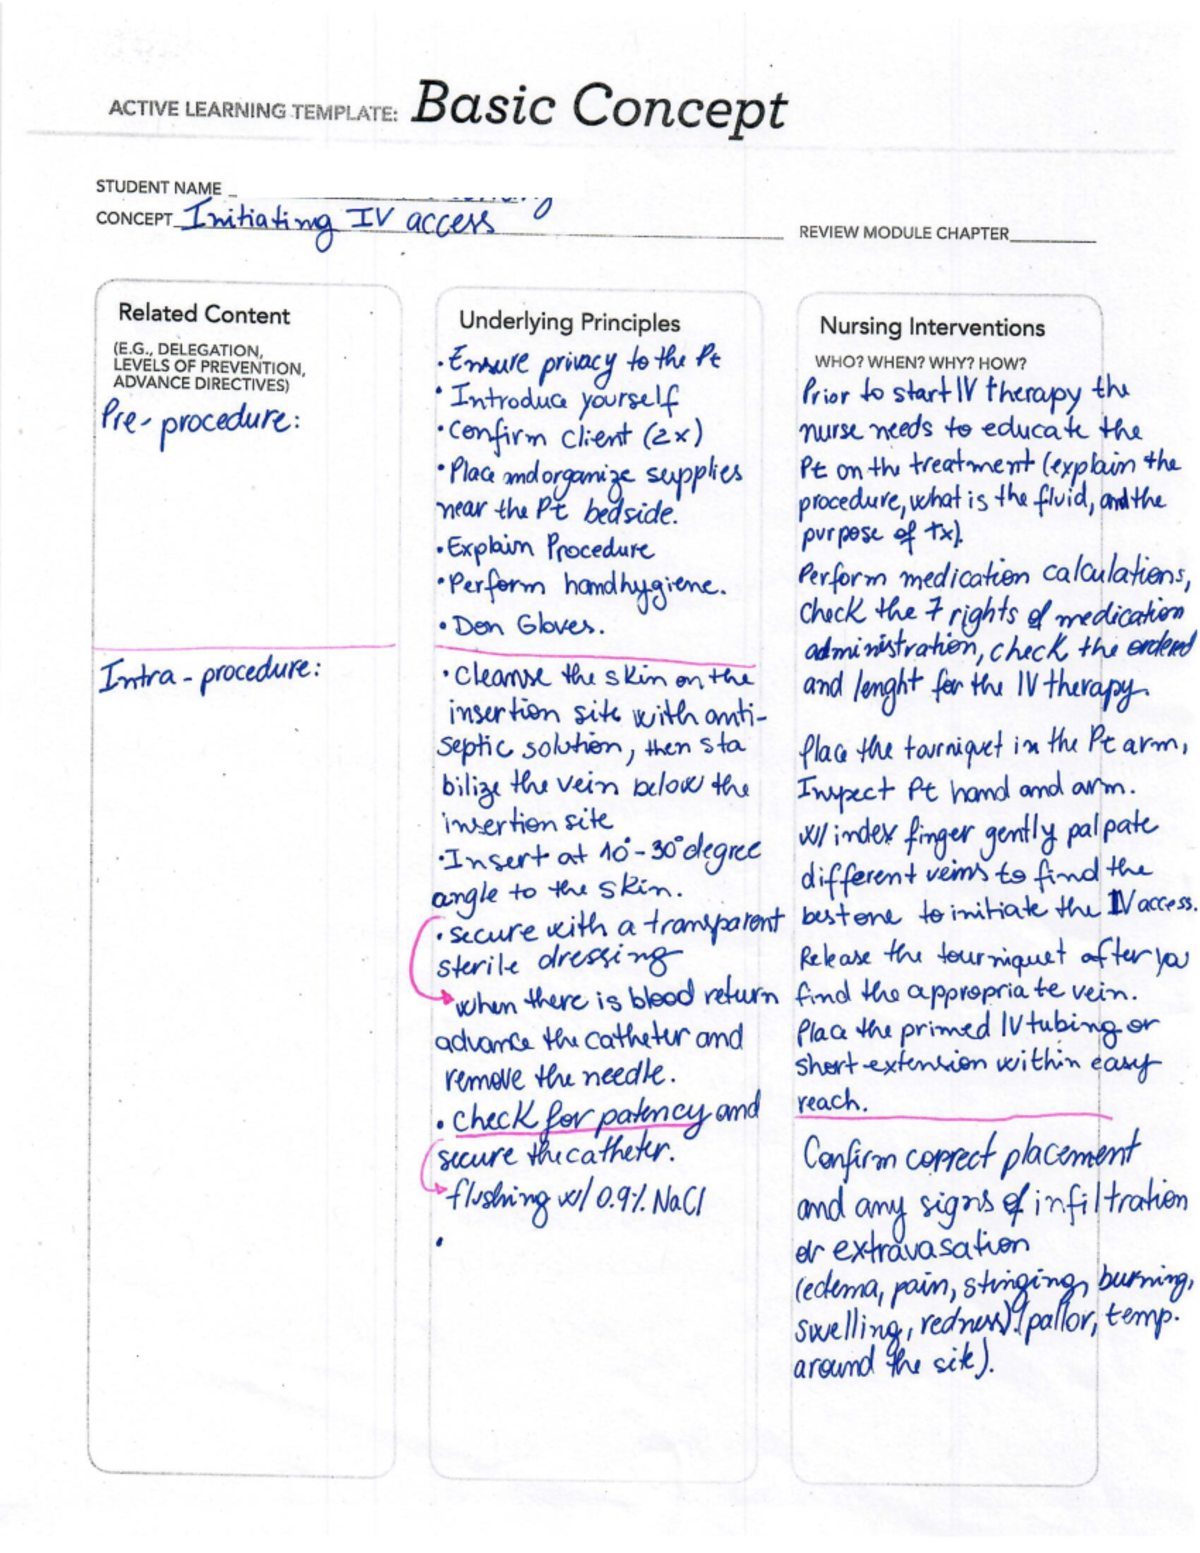 ACTIVE LEARNING TEMPLATE: Basic Concept
STUDENT NAME
CONCEPT Initiating IV access
REVIEW MODULE CHAPTER
Related Content
(E.G., DELEGATION,
LEVELS OF PREVENTION,
ADVANCE DIRECTIVES)
Pre-procedure:
Intra-procedure:
Underlying Principles
• Ensure privacy to the Pt
• Introduce yourself
• Confirm client (2x)
• Place and organize supplies
near the Pt bedside.
• Explain Procedure
• Perform hand hygiene.
• Don Gloves.
• Cleanse the skin on the
insertion site with anti-
septic solution, then sta
bilize the vein below the
insertion site
• Insert at 10°-30° degree
angle to the skin.
• secure with a transparent
sterile dressing
• when there is blood return
advance the catheter and
remove the needle.
• Check for patency and
secure the catheter.
• flushing w/ 0.9% NaCl
•
Nursing Interventions
WHO? WHEN? WHY? HOW?
Prior to start IV therapy the
nurse needs to educate the
Pt on the treatment (explain the
procedure, what is the fluid, and the
purpose of tx).
Perform medication calculations,
check the 7 rights of medication
administration, check the ordered
and lenght for the IV therapy.
Place the tourniquet in the Pt arm,
Inspect Pt hand and arm.
w/ index finger gently palpate
different veins to find the
best one to initiate the IV access.
Release the tourniquet after you
find the appropriate vein.
Place the primed IV tubing or
short-extension within easy
reach.
Confirm correct placement
and any signs of infiltration
or extravasation
(edema, pain, stinging, burning,
swelling, redness) (pallor, temp.
around the site).